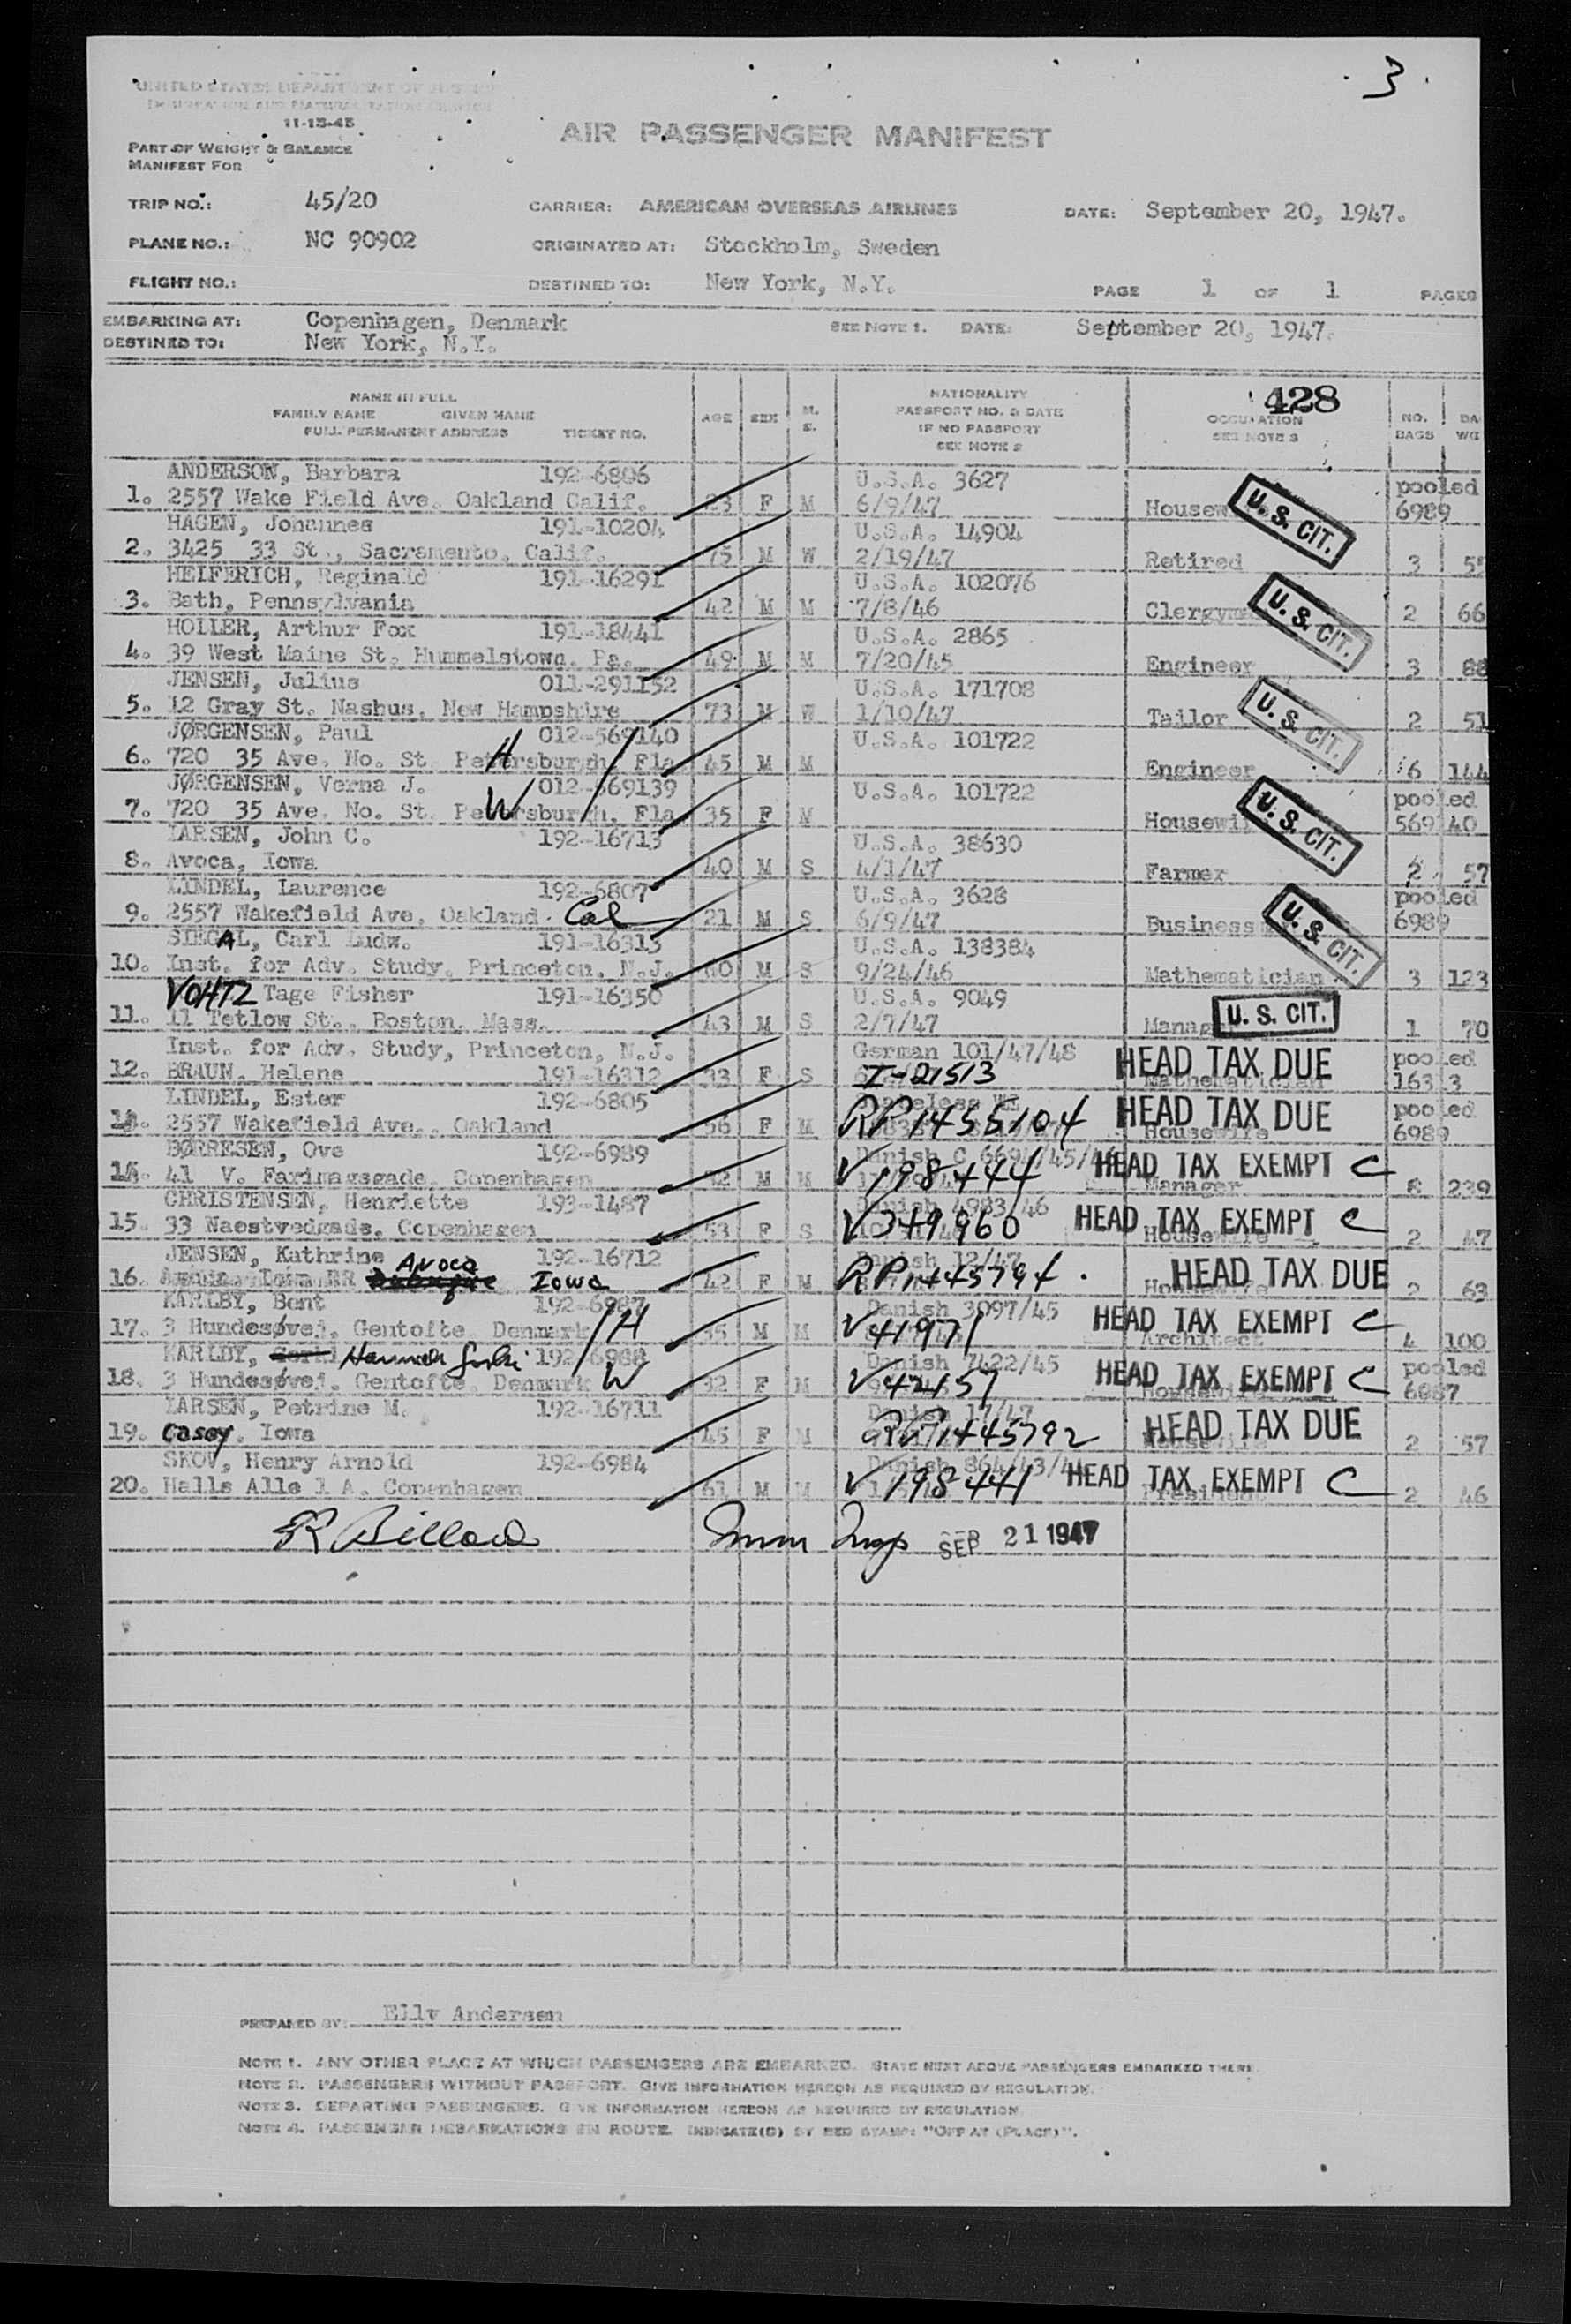 3
UNITED STATES DEPARTMENT OF JUSTICE
IMMIGRATION AND NATURALIZATION SERVICE
11-15-45
PART OF WEIGHT & BALANCE
MANIFEST FOR
AIR PASSENGER MANIFEST
TRIP NO.: 45/20 CARRIER: AMERICAN OVERSEAS AIRLINES DATE: September 20, 1947.
PLANE NO.: NC 90902 ORIGINATED AT: Stockholm, Sweden
FLIGHT NO.: DESTINED TO: New York, N.Y. PAGE 1 OF 1 PAGES
EMBARKING AT: Copenhagen, Denmark SEE NOTE 1. DATE: September 20, 1947.
DESTINED TO: New York, N.Y.
428
NAME IN FULL
FAMILY NAME GIVEN NAME
FULL PERMANENT ADDRESS TICKET NO.
AGE SEX M. S.
NATIONALITY
PASSPORT NO. & DATE
IF NO PASSPORT
SEE NOTE 2
OCCUPATION
SEE NOTE 3
NO. BAGS
BA WG
ANDERSON, Barbara 192-6806 U.S.A. 3627 pooled
1. 2557 Wake Field Ave. Oakland Calif. 23 F M 6/9/47 Housew U.S. CIT. 6989
HAGEN, Johannes 191-10204 U.S.A. 14904
2. 3425 33 St., Sacramento, Calif. 75 M W 2/19/47 Retired 3 55
HEIFERICH, Reginald 191-16291 U.S.A. 102076
3. Bath, Pennsylvania 42 M M 7/8/46 Clergym U.S. CIT. 2 66
HOLLER, Arthur Fox 191-18441 U.S.A. 2865
4. 39 West Maine St. Hummelstown. Pa. 49 M M 7/20/45 Engineer 3 88
JENSEN, Julius 011-291152 U.S.A. 171708
5. 12 Gray St. Nashus, New Hampshire 73 M W 1/10/47 Tailor U.S. CIT. 2 51
JØRGENSEN, Paul 012-569140 U.S.A. 101722
6. 720 35 Ave. No. St. Petersburgh Fla H 45 M M Engineer 6 144
JØRGENSEN, Verna J. 012-569139 U.S.A. 101722 pooled
7. 720 35 Ave. No. St. Petersburgh. Fla W 35 F M Housewi U.S. CIT. 569140
LARSEN, John C. 192-16713 U.S.A. 38630
8. Avoca, Iowa 40 M S 4/1/47 Farmer 2 57
LINDEL, Laurence 192-6807 U.S.A. 3628 pooled
9. 2557 Wakefield Ave, Oakland. Cal 21 M S 6/9/47 Business U.S. CIT. 6989
SIEGAL, Carl Ludw. 191-16313 U.S.A. 138384
10. Inst. for Adv. Study, Princeton, N.J. 50 M S 9/24/46 Mathematician 3 123
VOHTZ Tage Fisher 191-16350 U.S.A. 9049
11. 11 Tetlow St., Boston, Mass. 43 M S 2/7/47 Manag U.S. CIT. 1 70
Inst. for Adv. Study, Princeton, N.J. German 101/47/48 HEAD TAX DUE pooled
12. BRAUN. Helene 191-16312 33 F S I-21513 Mathematician 16313
LINDEL, Ester 192-6805 Stateless HEAD TAX DUE pooled
13. 2557 Wakefield Ave., Oakland 56 F M RP1455104 Housewife 6989
BØRRESEN, Ove 192-6989 Danish HEAD TAX EXEMPT C
14. 41 V. Farimagsgade, Copenhagen 32 M M V198444 Manager 8 239
CHRISTENSEN, Henriette 193-1487 Danish 4983/46 HEAD TAX EXEMPT C
15. 33 Naestvedgade. Copenhagen 53 F S V349960 Housewife 2 47
JENSEN, Kathrine 192-16712 Danish 12/47
16. Avoca Iowa 42 F M RP1445794. HEAD TAX DUE 2 63
KARLBY, Bent 192-6987 Danish 3097/45 HEAD TAX EXEMPT C
17. 3 Hundesøvej. Gentofte Denmark H 35 M M V41971 Architect 4 100
KARLBY, Hannah 192-6988 Danish 7422/45 HEAD TAX EXEMPT C pooled
18. 3 Hundesøvej. Gentofte, Denmark W 32 F M V42457 Housewife 6987
LARSEN, Petrine M. 192-16711 Danish 17/47 HEAD TAX DUE
19. Casey, Iowa 45 F M RP1445792 Housewife 2 57
SKOV, Henry Arnold 192-6984 Danish 864/43/44 HEAD TAX EXEMPT C
20. Halls Alle 1 A. Copenhagen 61 M M V198441 President 2 46
Imm Insp SEP 21 1947
PREPARED BY: Elly Andersen
NOTE 1. ANY OTHER PLACE AT WHICH PASSENGERS ARE EMBARKED. STATE NEXT ABOVE PASSENGERS EMBARKED THERE.
NOTE 2. PASSENGERS WITHOUT PASSPORT. GIVE INFORMATION HEREON AS REQUIRED BY REGULATION.
NOTE 3. DEPARTING PASSENGERS. GIVE INFORMATION HEREON AS REQUIRED BY REGULATION.
NOTE 4. PASSENGER DEBARKATIONS EN ROUTE. INDICATE(D) BY RED STAMP: "OFF AT (PLACE)".